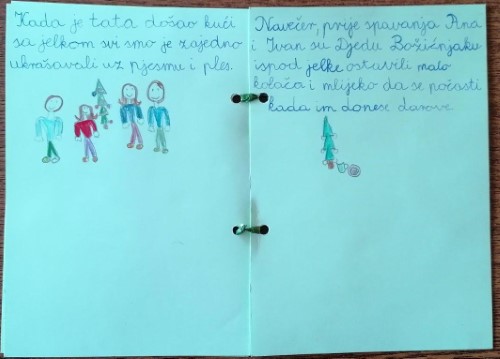 Kada je tata došao kući
sa jelkom svi smo je zajedno
ukrašavali uz pjesmu i ples.
Navečer, prije spavanja Ana
i Ivan su Djedu Božićnjaku
ispod jelke ostavili malo
kolača i mlijeko da se počasti
kada im donese darove.